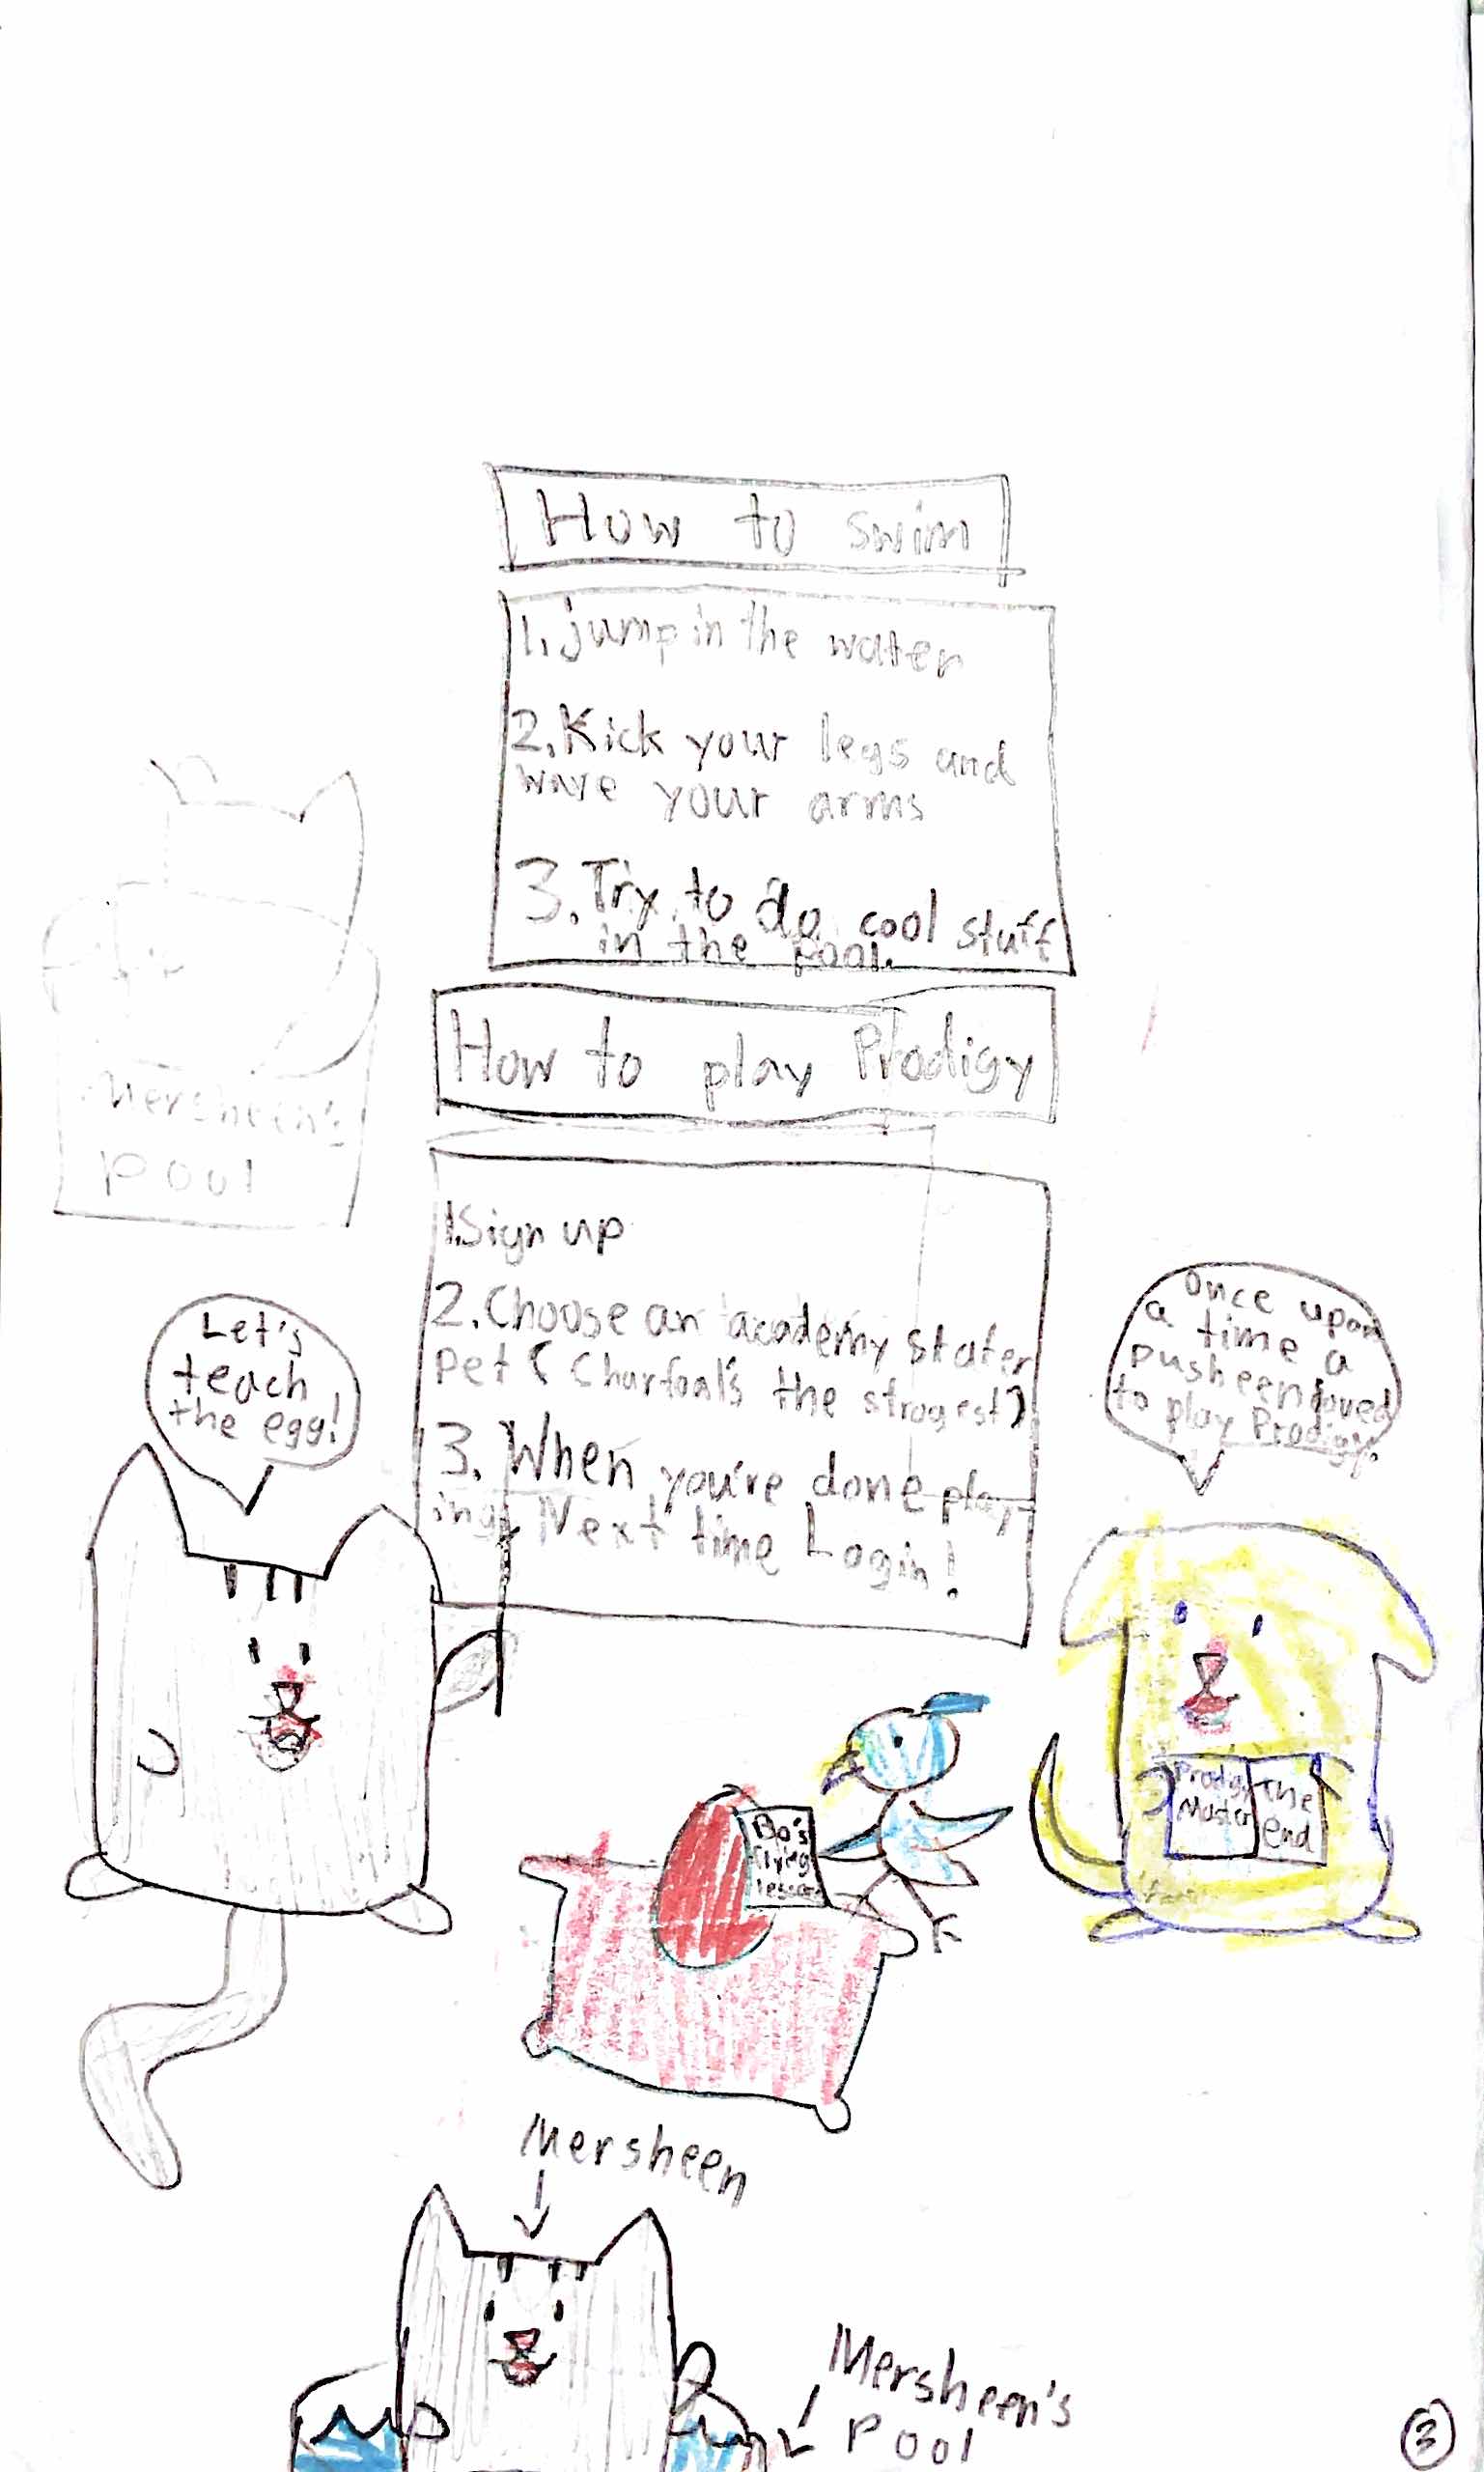 How to swim
1. jump in the water
2. Kick your legs and
wave your arms
3. Try to do cool stuff
in the pool.
How to play Prodigy
Mersheen's
pool
1. Sign up
2. Choose an academy stater
pet ( Charfoal's the strogest)
3. When you're done play-
ing, Next time Login!
Let's
teach
the egg!
Once upon
a time a
pusheen loved
to play Prodigy.
Bo's
flying
lesson
Prodigy
Master
The
end
Mersheen
Mersheen's
pool
3